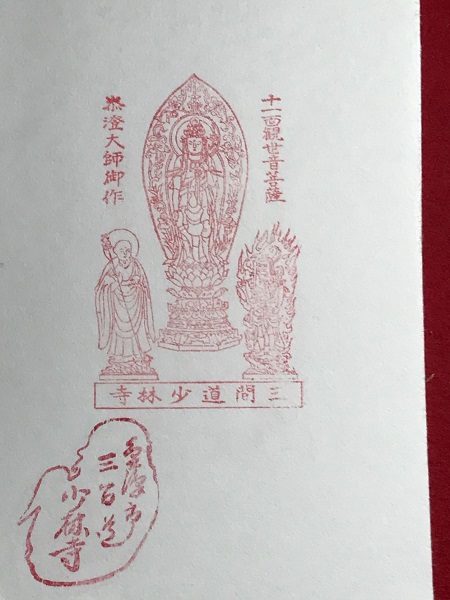 十一面觀世音菩薩
泰澄大師御作
三間道少林寺
金澤市
三間道
少林寺